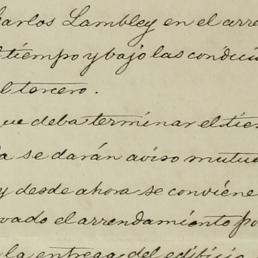 Carlos Lambley en el arre
tiempo y bajo las condicio
l tercero.
ue deba terminar el tiem
a se darán aviso mutuo
y desde ahora se conviene
vado el arrendamiento po
la entrega del edificio